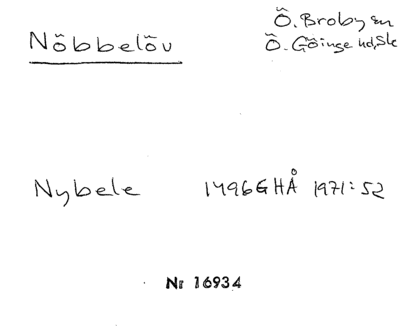 Nöbbelöv
Ö. Broby sn
Ö. Göinge hd, Sk
Nybele 1496 GHÅ 1971:52
Nr 16934